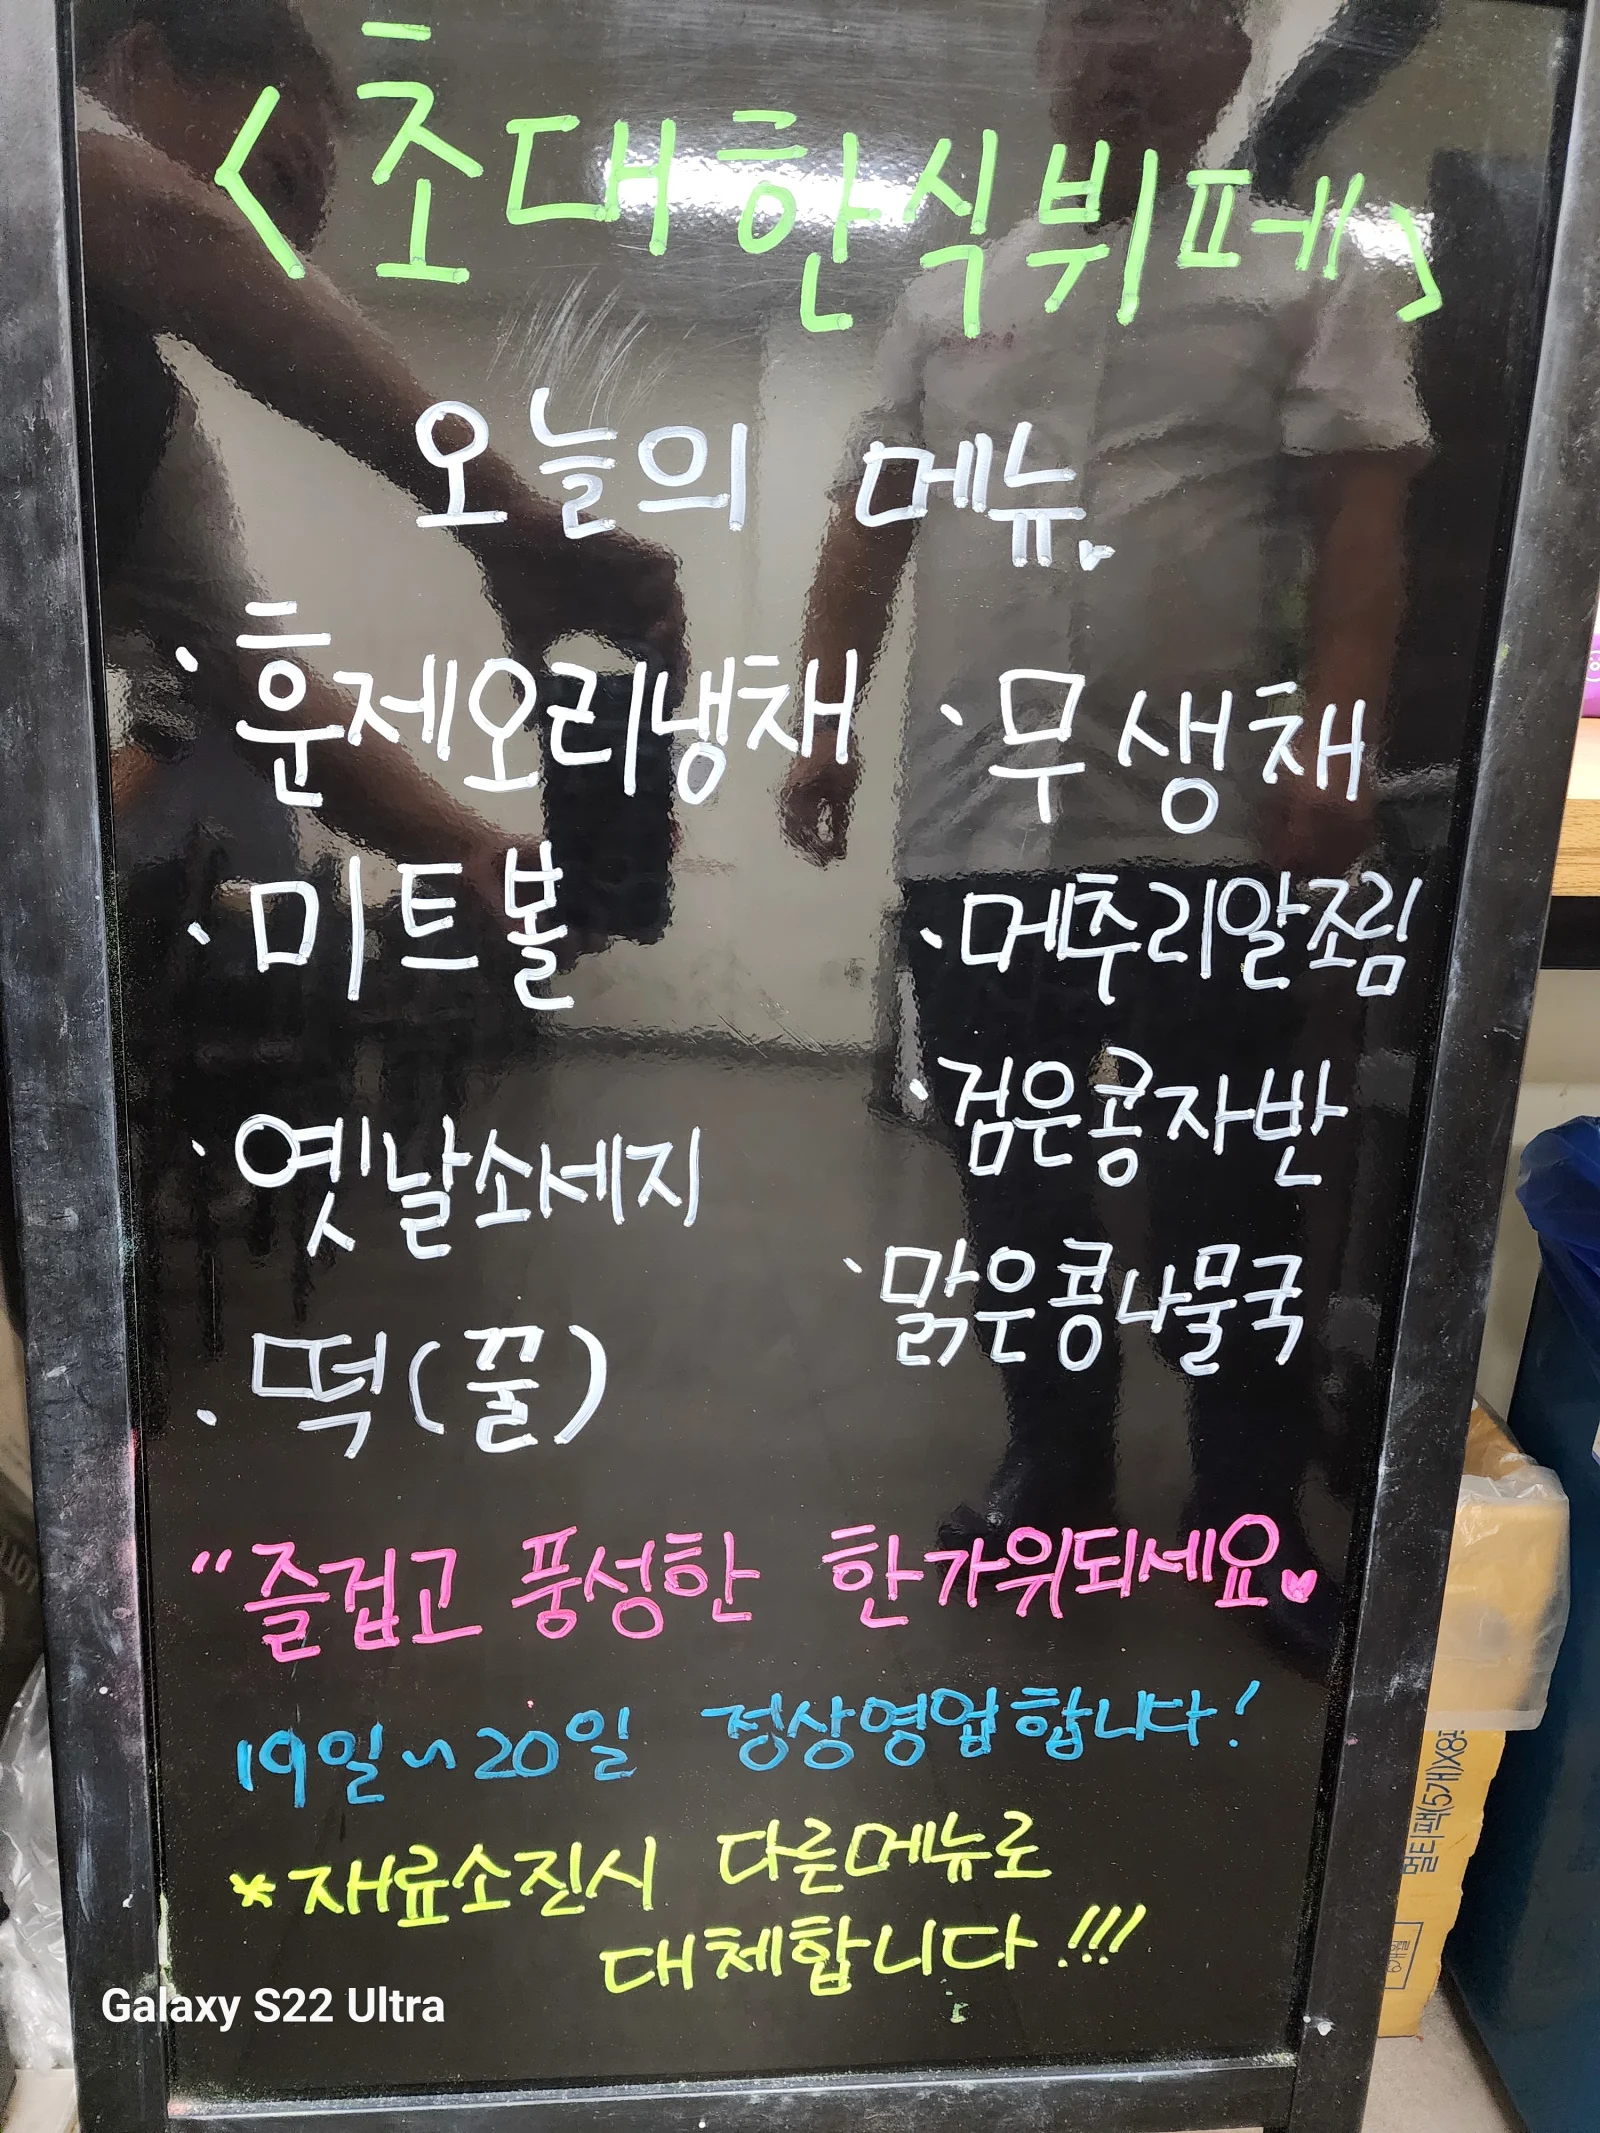 <초대한식뷔페>
오늘의 메뉴
· 훈제오리냉채
· 무생채
· 미트볼
· 메추리알조림
· 검은콩자반
· 옛날소세지
· 맑은콩나물국
· 떡(꿀)
“즐겁고 풍성한 한가위되세요♥
19일~20일 정상영업합니다!
*재료소진시 다른메뉴로
대체합니다!!!
Galaxy S22 Ultra
멀티팩(5개)X8